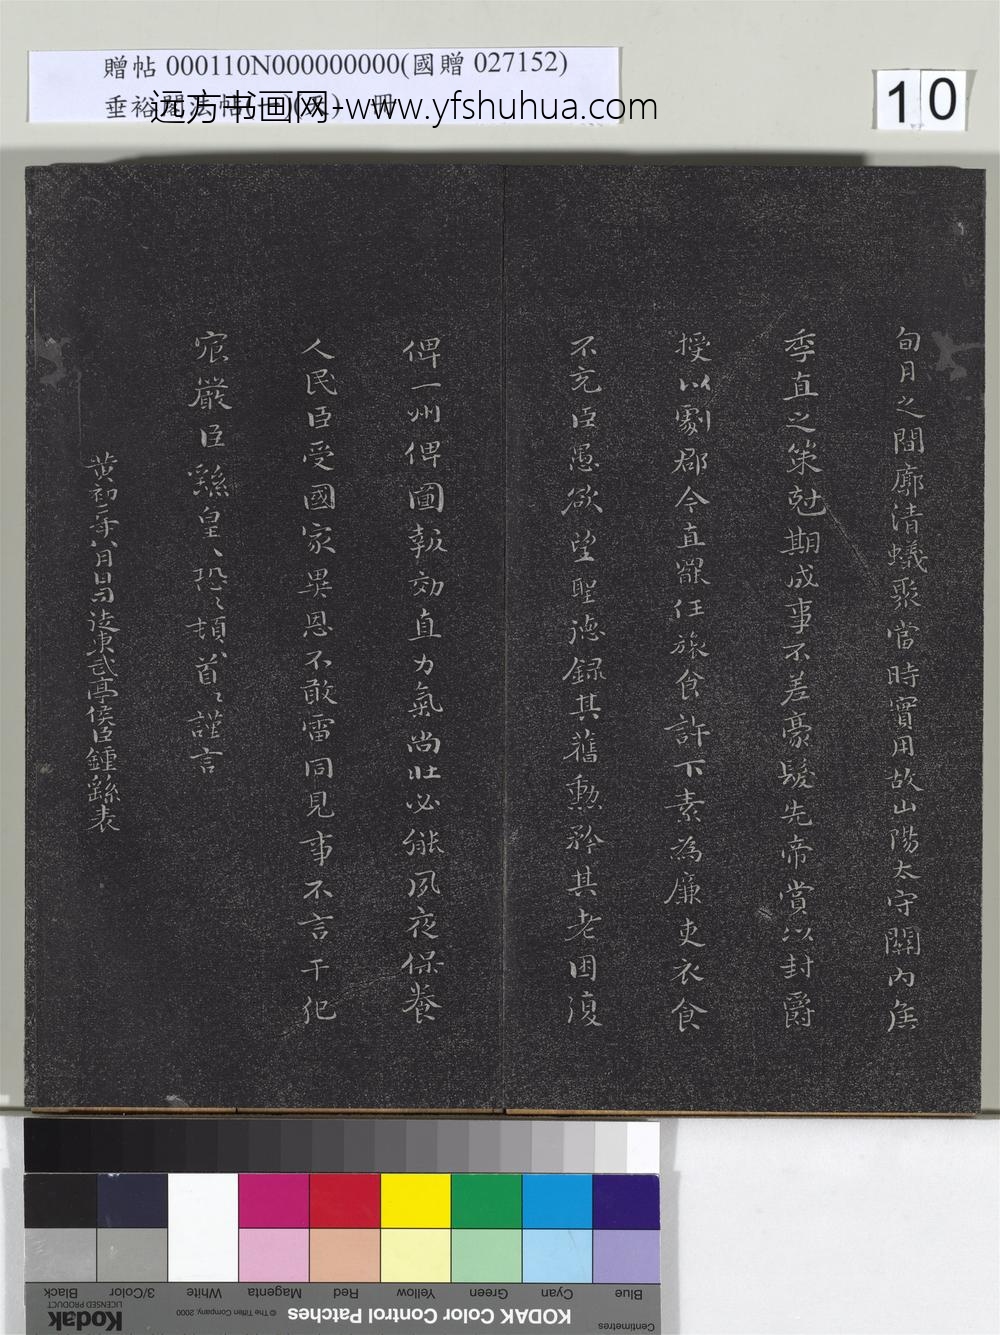 贈帖 000110N000000000(國贈 027152)
垂裕閣法帖
远方书画网-www.yfshuhua.com
10
旬月之間廓清蟻聚當時實用故山陽太守關內侯
季直之策剋期成事不差豪髮先帝賞以封爵
授以劇郡今直罷任旅食許下素為廉吏衣食
不充臣愚欲望聖德錄其舊勳矜其老困復
俾一州俾圖報効直力氣尚壯必能夙夜保養
人民臣受國家異恩不敢雷同見事不言干犯
宸嚴臣繇皇〻恐〻頓〻首〻謹言
黃初二年八月日司徒東武亭侯臣鍾繇表
Blue Cyan Green Yellow Red Magenta White 3/Color Black
Centimetres KODAK Color Control Patches © The Tiffen Company, 2000 Kodak
LICENSED PRODUCT